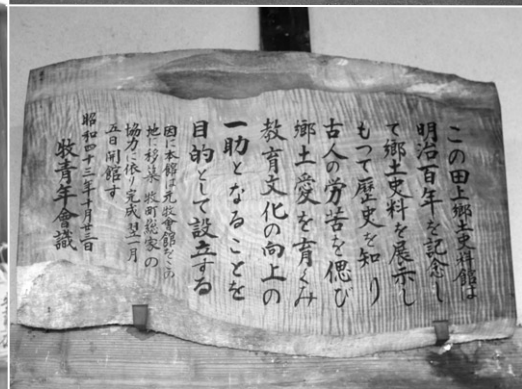 この田上郷土史料館は
明治百年を記念し
て郷土史料を展示し
もつて歴史を知り
古人の労苦を偲び
郷土愛を育くみ
教育文化の向上の
一助となることを
目的として設立する
因に本館は元牧會館をこの
地に移築 牧町総家の
協力に依り完成 翌一月
五日開館す
昭和四十三年十月廿三日
牧青年會識